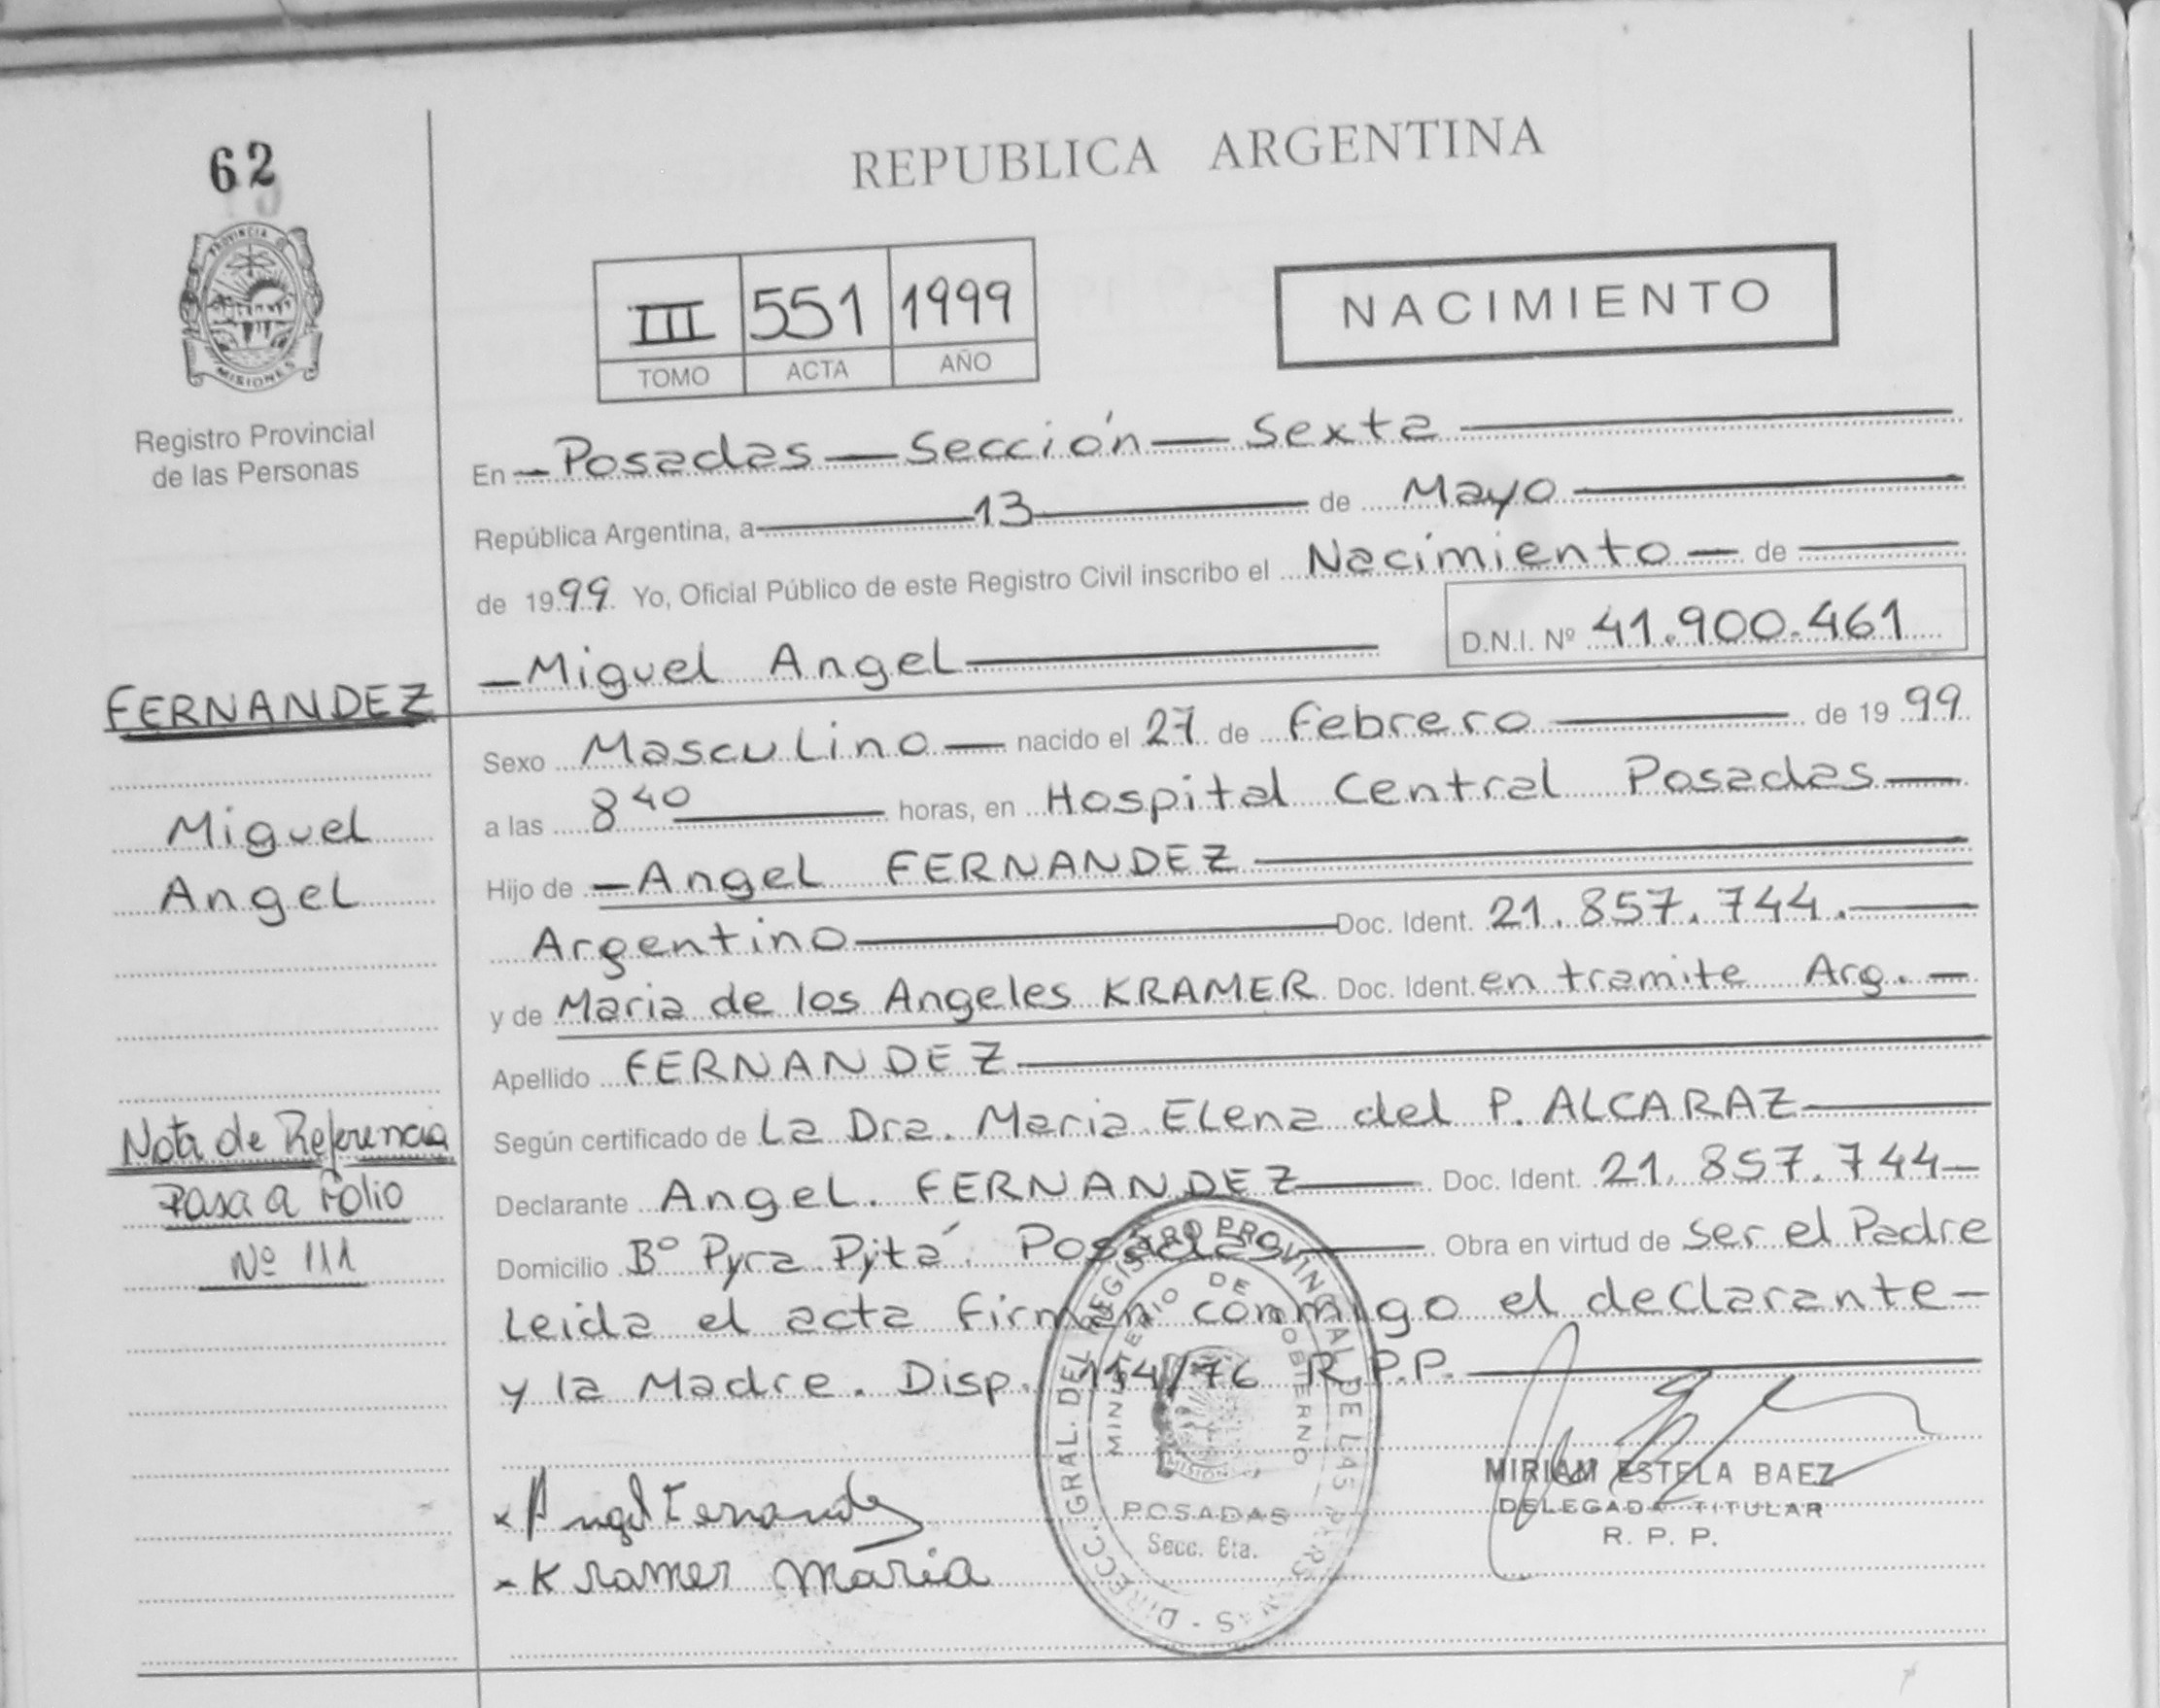 62
REPUBLICA ARGENTINA
PROVINCIA DE MISIONES
Registro Provincial
de las Personas
III 551 1999
TOMO ACTA AÑO
NACIMIENTO
En Posadas Sección Sexta
República Argentina, a 13 de Mayo
de 1999 Yo, Oficial Público de este Registro Civil inscribo el Nacimiento de
Miguel Angel D.N.I. Nº 41.900.461
FERNANDEZ
Miguel
Angel
Sexo Masculino nacido el 27 de Febrero de 1999
a las 8 40 horas, en Hospital Central Posadas
Hijo de Angel FERNANDEZ
Argentino Doc. Ident. 21.857.744.
y de Maria de los Angeles KRAMER Doc. Ident. en tramite Arg.
Apellido FERNANDEZ
Según certificado de La Dra. Maria Elena del P. ALCARAZ
Declarante Angel. FERNANDEZ Doc. Ident. 21.857.744
Domicilio Bº Pyra Pytá. Posadas Obra en virtud de ser el Padre
Leida el acta firman conmigo el declarante
y la Madre. Disp. 114/76 R.P.P.
Nota de Referencia
Pasa a Folio
Nº 111
Angel Fernandez
Kramer Maria
DIRECC. GRAL. DEL REGISTRO PROVINCIAL DE LAS PERSONAS
MINISTERIO DE GOBIERNO
MISIONES
POSADAS
Secc. 6ta.
MIRIAM ESTELA BAEZ
DELEGADA TITULAR
R. P. P.